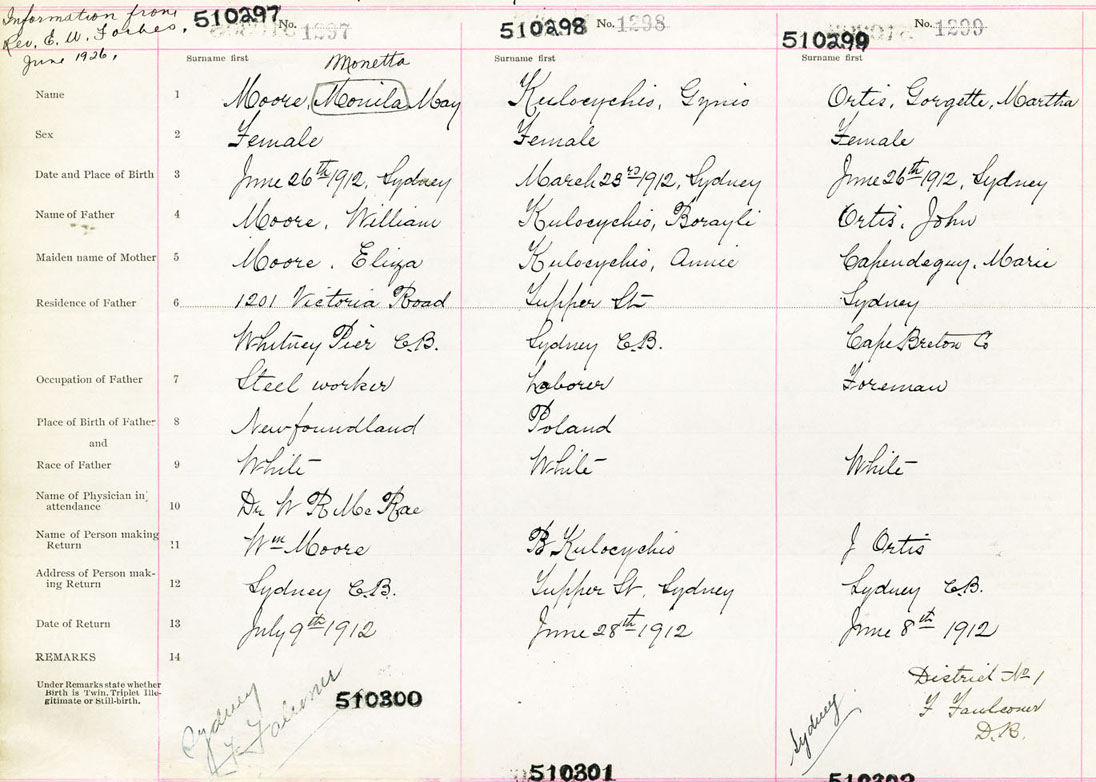 Information from
Rev. E. W. Forbes,
June 1926.
510297 No. 1297
510298 No. 1298
510299 No. 1299
Surname first Monetta
Surname first
Surname first
Name 1 Moore, Monila May Kulocychio, Gynio Ortis, Gorgette, Martha
Sex 2 Female Female Female
Date and Place of Birth 3 June 26th 1912, Sydney March 23rd 1912, Sydney June 26th 1912, Sydney
Name of Father 4 Moore, William Kulocychio, Borayli Ortis, John
Maiden name of Mother 5 Moore, Eliza Kulocychio, Annie Capendeguy, Marie
Residence of Father 6 1201 Victoria Road Tupper St Sydney
Whitney Pier C.B. Sydney C.B. Cape Breton Co
Occupation of Father 7 Steel worker Laborer Foreman
Place of Birth of Father 8 Newfoundland Poland
and
Race of Father 9 White White White
Name of Physician in
attendance 10 Dr W R McRae
Name of Person making
Return 11 Wm Moore B Kulocychio J Ortis
Address of Person mak-
ing Return 12 Sydney C.B. Tupper St, Sydney Sydney C.B.
Date of Return 13 July 9th 1912 June 28th 1912 June 8th 1912
REMARKS 14
Under Remarks state whether
Birth is Twin, Triplet Ille-
gitimate or Still-birth.
Sydney
F Falconer
510300
Sydney
District No 1
F Faulconer
D.R.
510301
510302